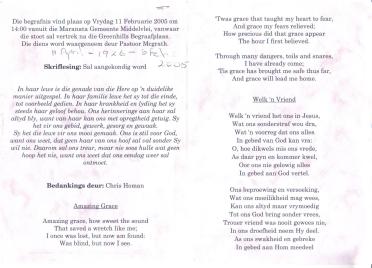 Die begrafnis vind plaas op Vrydag 11 Februarie 2005 om
14:00 vanuit die Maranata Gemeente Middelvlei, vanwaar
die stoet sal vertrek na die Greenhills Begrafplaas.
Die diens word waargeneem deur Pastoor Mcgrath.
11 April - 1926 - 5 Feb.
2005
Skriflesing: Sal aangekondig word
In haar lewe is die genade van die Here op 'n duidelike
manier uitgespel. In haar familie lewe het sy tot die einde,
tot voorbeeld gedien. In haar krankheid en lyding het sy
steeds haar geloof behou. Ons herinneringe aan haar sal
altyd bly, want van haar kan ons met opregtheid getuig. Sy
het vir ons gebid, gewerk, geswoeg en gewaak.
Sy het die lewe vir ons mooi gemaak. Ons is stil voor God,
want ons weet, dat geen haar van ons hoof sal val sonder Sy
wil nie. Daarom sal ons treur, maar nie soos hulle wat geen
hoop het nie, want ons weet dat ons eendag weer sal
ontmoet.
Bedankings deur: Chris Homan
Amazing Grace
Amazing grace, how sweet the sound
That saved a wretch like me;
I once was lost, but now am found:
Was blind, but now I see.
'Twas grace that taught my heart to fear,
And grace my fears relieved;
How precious did that grace appear
The hour I first believed.
Through many dangers, toils and snares,
I have already come;
'Tis grace has brought me safe thus far,
And grace will lead me home.
Welk 'n Vriend
Welk 'n vriend het ons in Jesus,
Wat ons sondestraf wou dra,
Wat 'n voorreg dat ons alles
In gebed aan God kan vra:
O, hoe dikwels mis ons vrede,
As daar pyn en kommer kwel,
Oor ons nie gelowig alles
In gebed aan God vertel.
Ons beproewing en versoeking,
Wat ons moeilikheid mag wees,
Kan ons altyd maar vrymoedig
Tot ons God bring sonder vrees,
Trouer vriend was nooit gewees nie,
In ons droefheid neem Hy deel.
As ons swakheid en gebreke
In gebed aan Hom meedeel